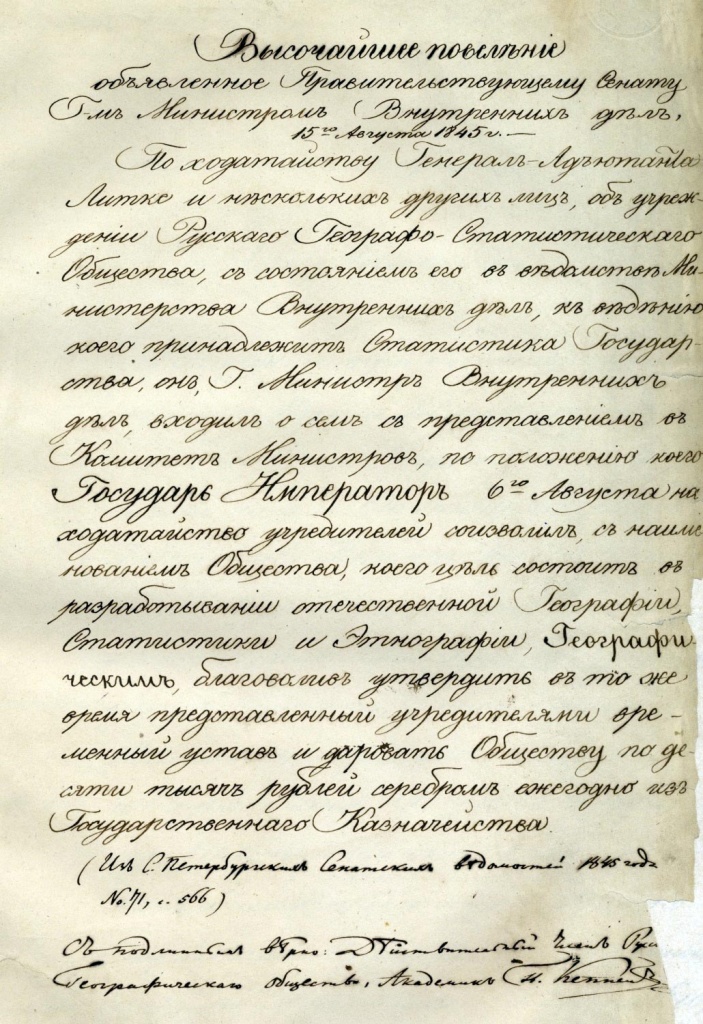 Высочайшее повелѣніе
объявленное Правительствующему Сенату
Г-мъ Министромъ Внутреннихъ дѣлъ,
15го Августа 1845 г. —
По ходатайству Генералъ-Адъютанта
Литке и нѣсколькихъ другихъ лицъ, объ учреж-
деніи Русскаго Географо-Статистическаго
Общества, съ состояніемъ его въ вѣдомствѣ Ми-
нистерства Внутреннихъ дѣлъ, къ вѣдѣнію
коего принадлежитъ Статистика Государ-
ства, онъ, Г. Министръ Внутреннихъ
дѣлъ, входилъ о семъ съ представленіемъ въ
Комитетъ Министровъ, по положенію коего
Государь Императоръ 6го Августа на
ходатайство учредителей соизволилъ, съ наиме
нованіемъ Общества, коего цѣль состоитъ въ
разработываніи отечественной Географіи,
Статистики и Этнографіи, Географи-
ческимъ, благоволивъ утвердить въ то же
время представленный учредителями вре-
менный уставъ и даровать Обществу по де-
сяти тысячъ рублей серебромъ ежегодно изъ
Государственнаго Казначейства.
(Изъ С. Петербургскихъ Сенатскихъ вѣдомостей 1845 года
No. 71, с. 566)
Съ подлиннымъ вѣрно: Дѣйствительный Членъ Рус
Географическаго общества, Академикъ П. Кеппенъ